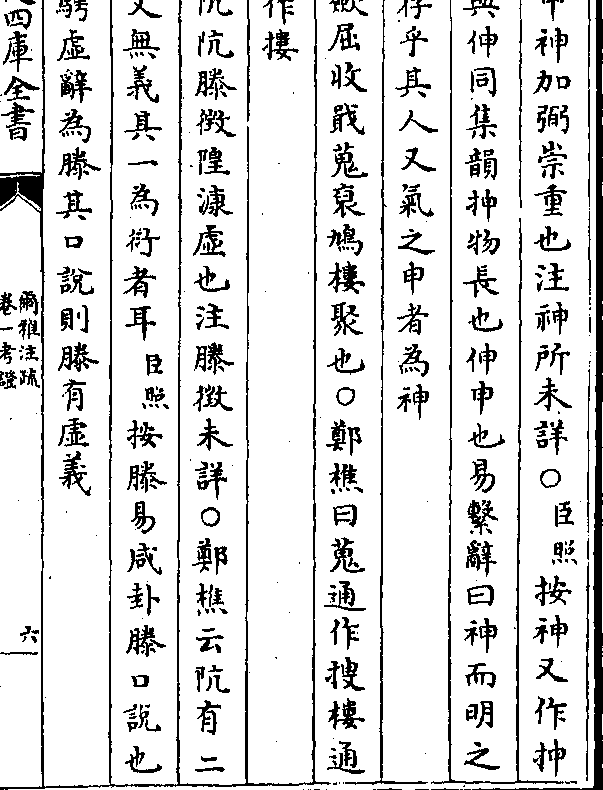 申神加弼崇重也注神所未詳○臣照按神又作抻
與伸同集韻抻物長也伸申也易繫辭曰神而明之
存乎其人又氣之申者為神
歛屈收戢蒐裒鳩樓聚也○鄭樵曰蒐通作搜樓通
作摟
阬阬滕徴隍漮虛也注滕徴未詳○鄭樵云阬有二
又無義其一為衍者耳臣照按滕易咸卦滕口說也
騁虛辭為滕其口說則滕有虛義
四庫全書
爾雅注疏
卷一考證
六